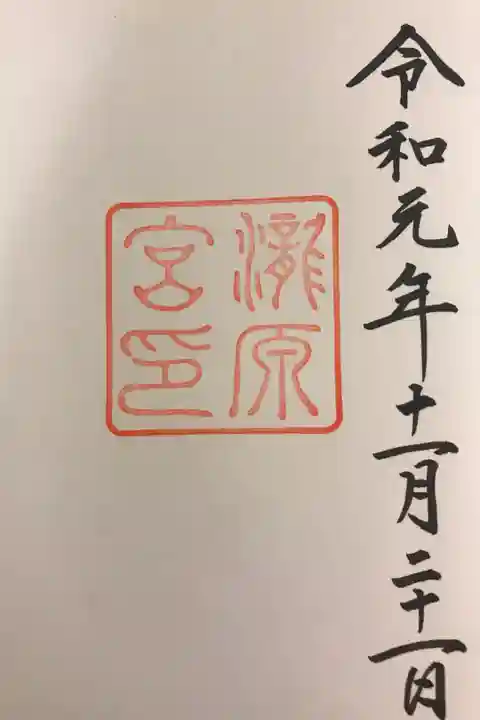 令和元年十一月二十一日
瀧原
宮印